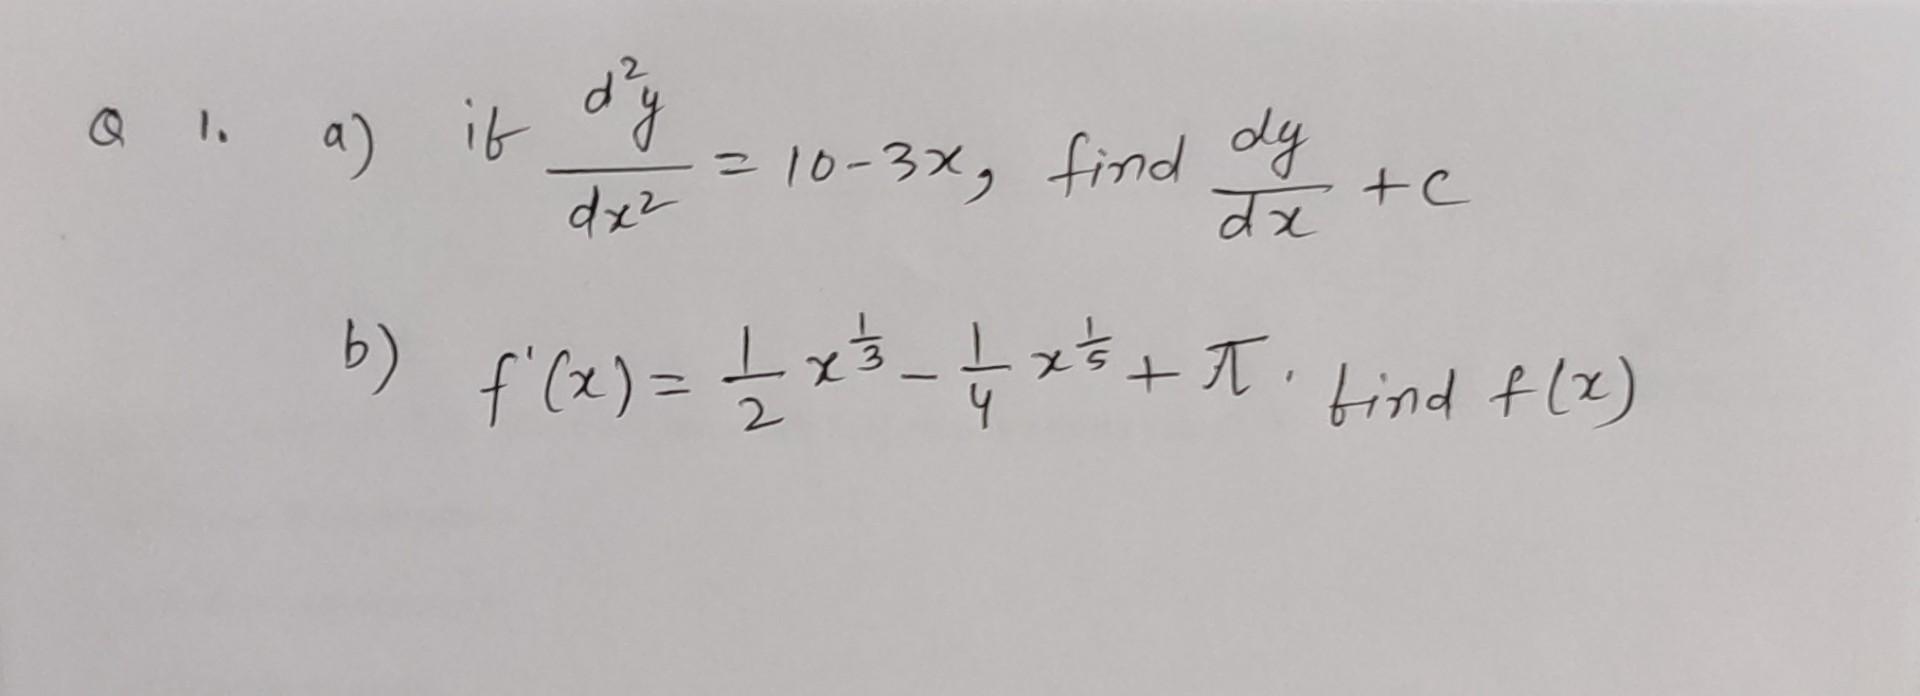 Q 1. a) if d²y/dx² = 10-3x, find dy/dx + c
b) f'(x) = 1/2 x^(1/3) - 1/4 x^(1/5) + π. find f(x)